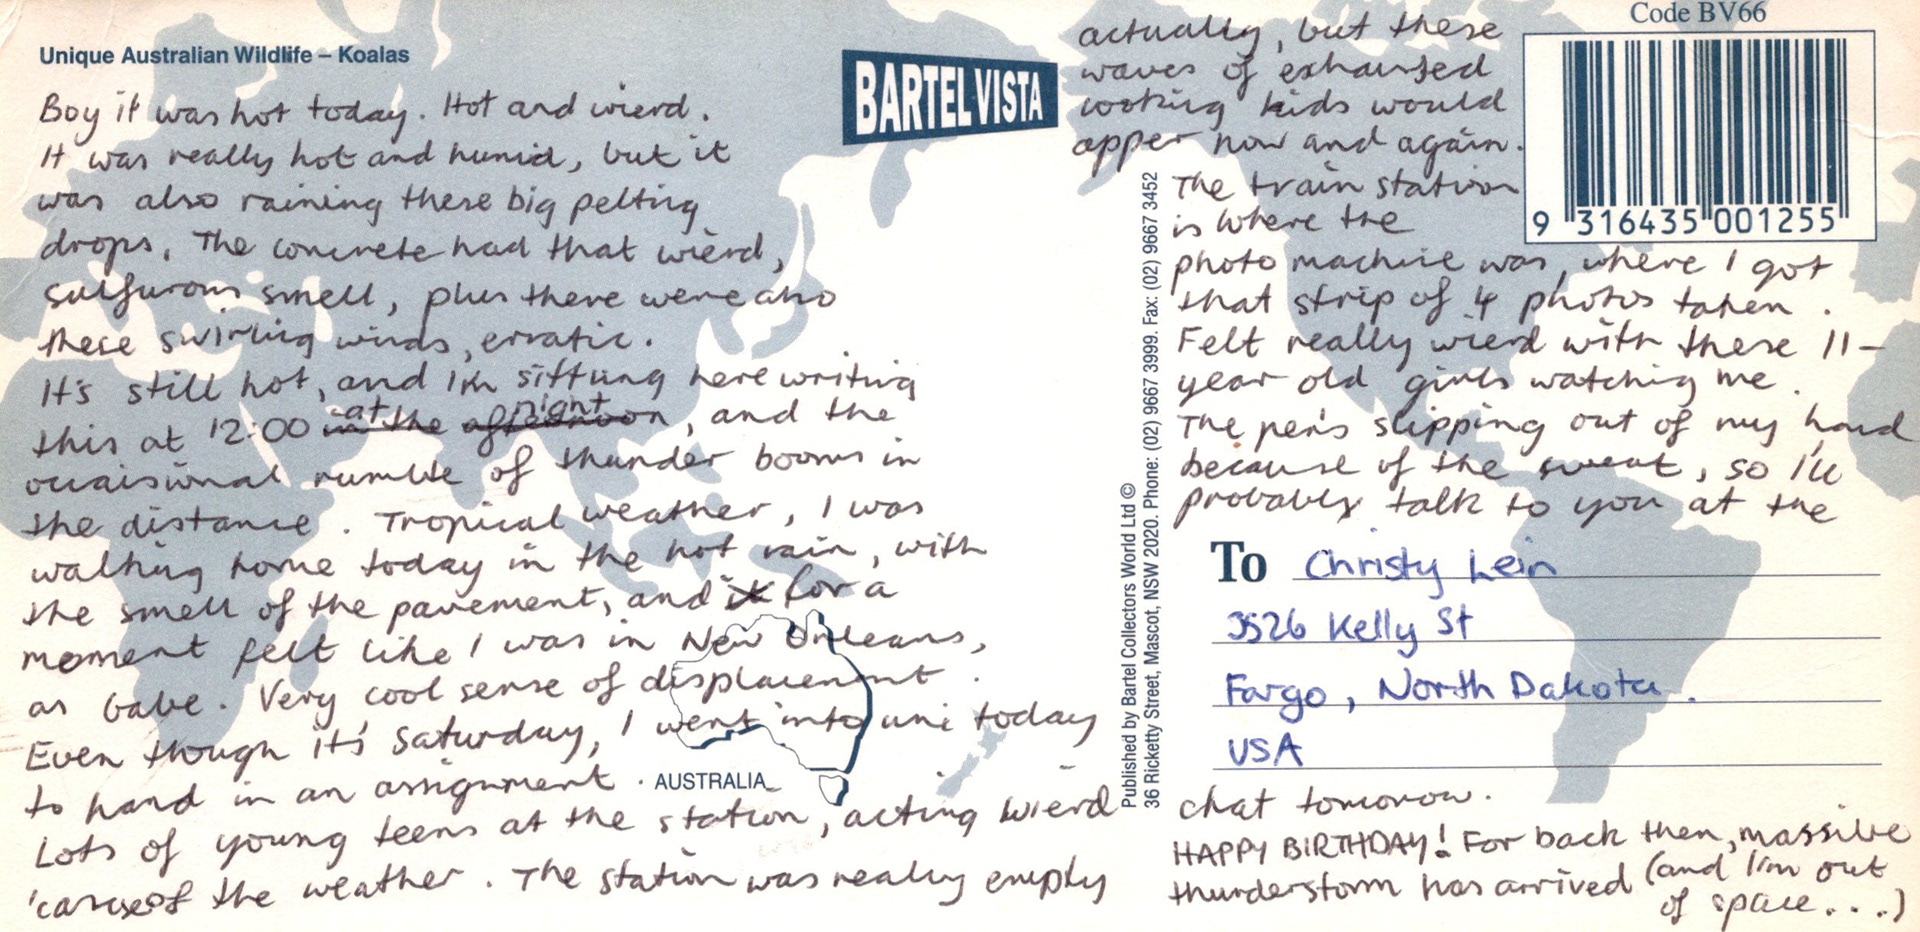 Unique Australian Wildlife – Koalas
Boy it was hot today. Hot and wierd.
It was really hot and humid, but it
was also raining these big pelting
drops. The concrete had that wierd,
sulfurous smell, plus there were also
these swirling winds, erratic.
It's still hot, and I'm sitting here writing
this at 12:00 in the afternoon at night, and the
occaisional rumble of thunder booms in
the distance. Tropical weather, I was
walking home today in the hot rain, with
the smell of the pavement, and it for a
moment felt like I was in New Orleans,
as Gabe. Very cool sense of displacement.
Even though it's Saturday, I went into uni today
to hand in an assignment.
Lots of young teens at the station, acting wierd
'cause of the weather. The station was really empty
AUSTRALIA
BARTEL VISTA
Published by Bartel Collectors World Ltd ©
36 Ricketty Street, Mascot, NSW 2020. Phone: (02) 9667 3999. Fax: (02) 9667 3452
actually, but these
waves of exhausted
looking kids would
apper now and again.
The train station
is where the
photo machine was, where I got
that strip of 4 photos taken.
Felt really wierd with these 11-
year old girls watching me.
The pen's slipping out of my hand
because of the sweat, so I'll
probably talk to you at the
Code BV66
9 316435 001255
To Christy Lein
3526 Kelly St
Fargo, North Dakota.
USA
chat tomorow.
HAPPY BIRTHDAY! For back then, massive
thunderstorm has arrived (and I'm out
of space...)